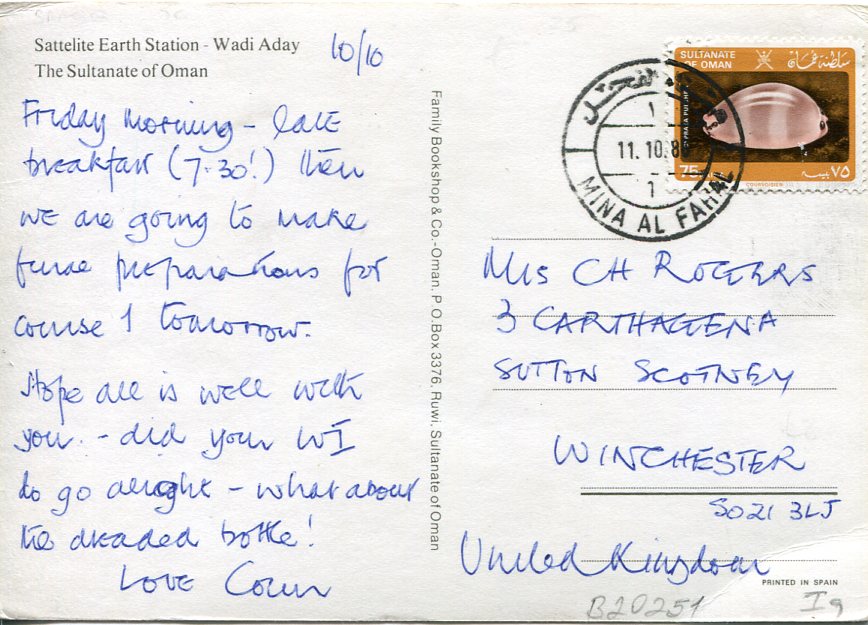 Sattelite Earth Station - Wadi Aday
The Sultanate of Oman
10/10
Friday morning - late
breakfast (7.30!) then
we are going to make
final preparations for
course 1 tomorrow.
Hope all is well with
you. - did your WI
do go alright - what about
the dreaded bottle!
Love Colin
Family Bookshop & Co.-Oman. P.O.Box 3376, Ruwi, Sultanate of Oman
SULTANATE
OF OMAN
سلطنة عمان
75
٧٥ بيسة
COURVOISIER
ميناء الفحل
1
11.10.8
1
MINA AL FAHAL
Mrs CH ROGERS
3 CARTHAGENA
SUTTON SCOTNEY
WINCHESTER
SO21 3LJ
United Kingdom
PRINTED IN SPAIN
B20251
Ig